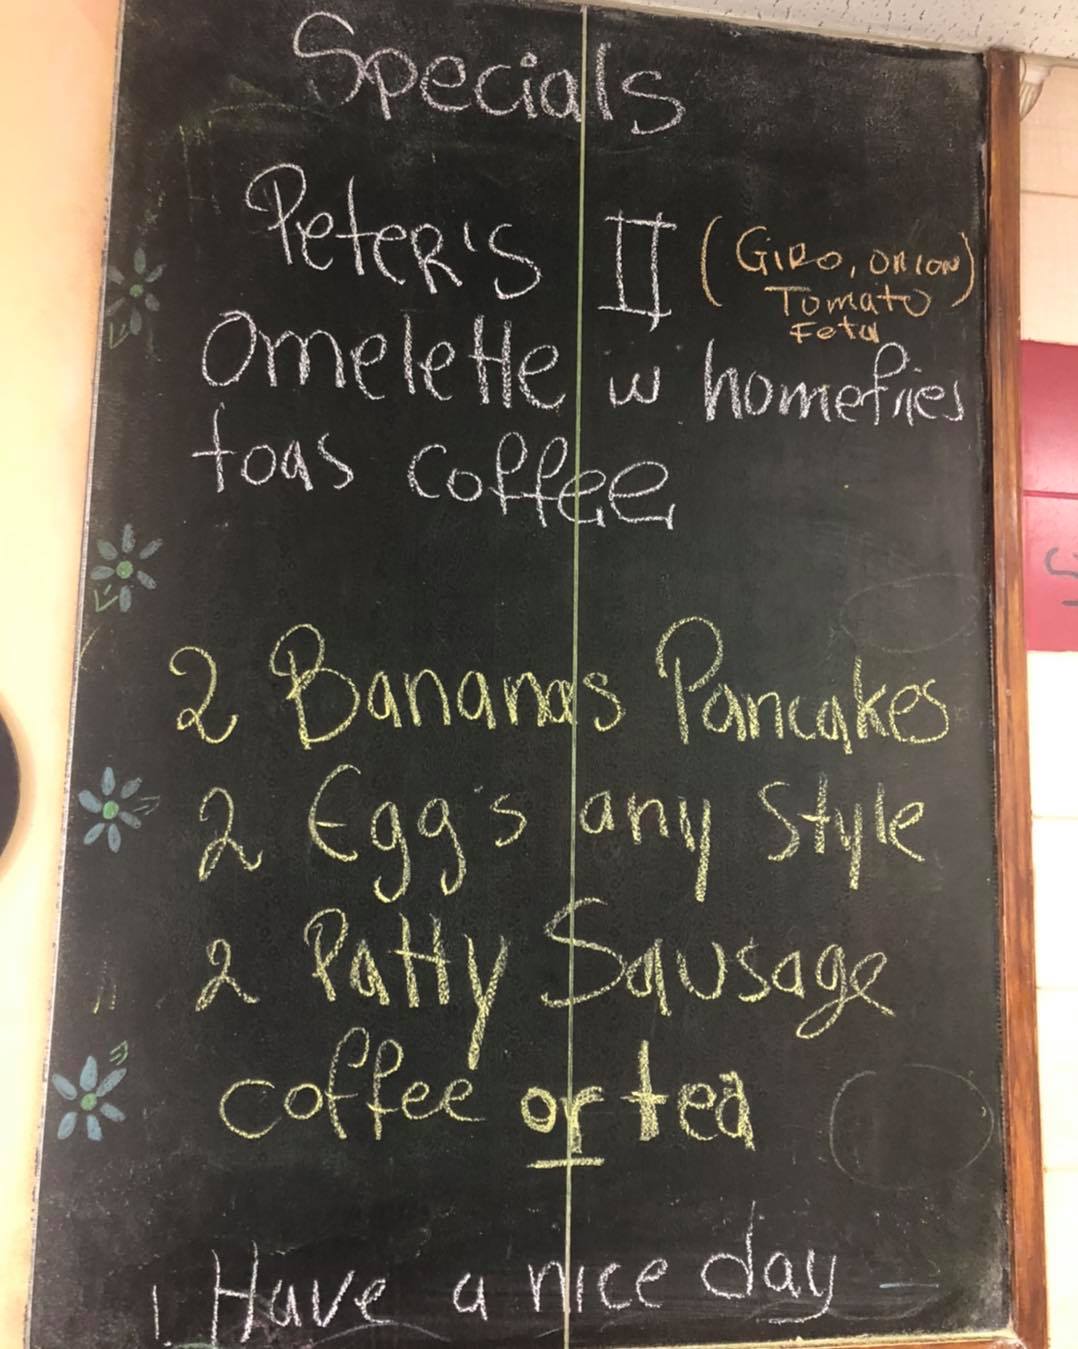 Specials
Peter's II (Giro, onion)
Tomato
Feta
Omelette w homefries
toas coffee
2 Bananas Pancakes
2 Egg's any Style
2 Patty Sausage
coffee or tea
Have a nice day